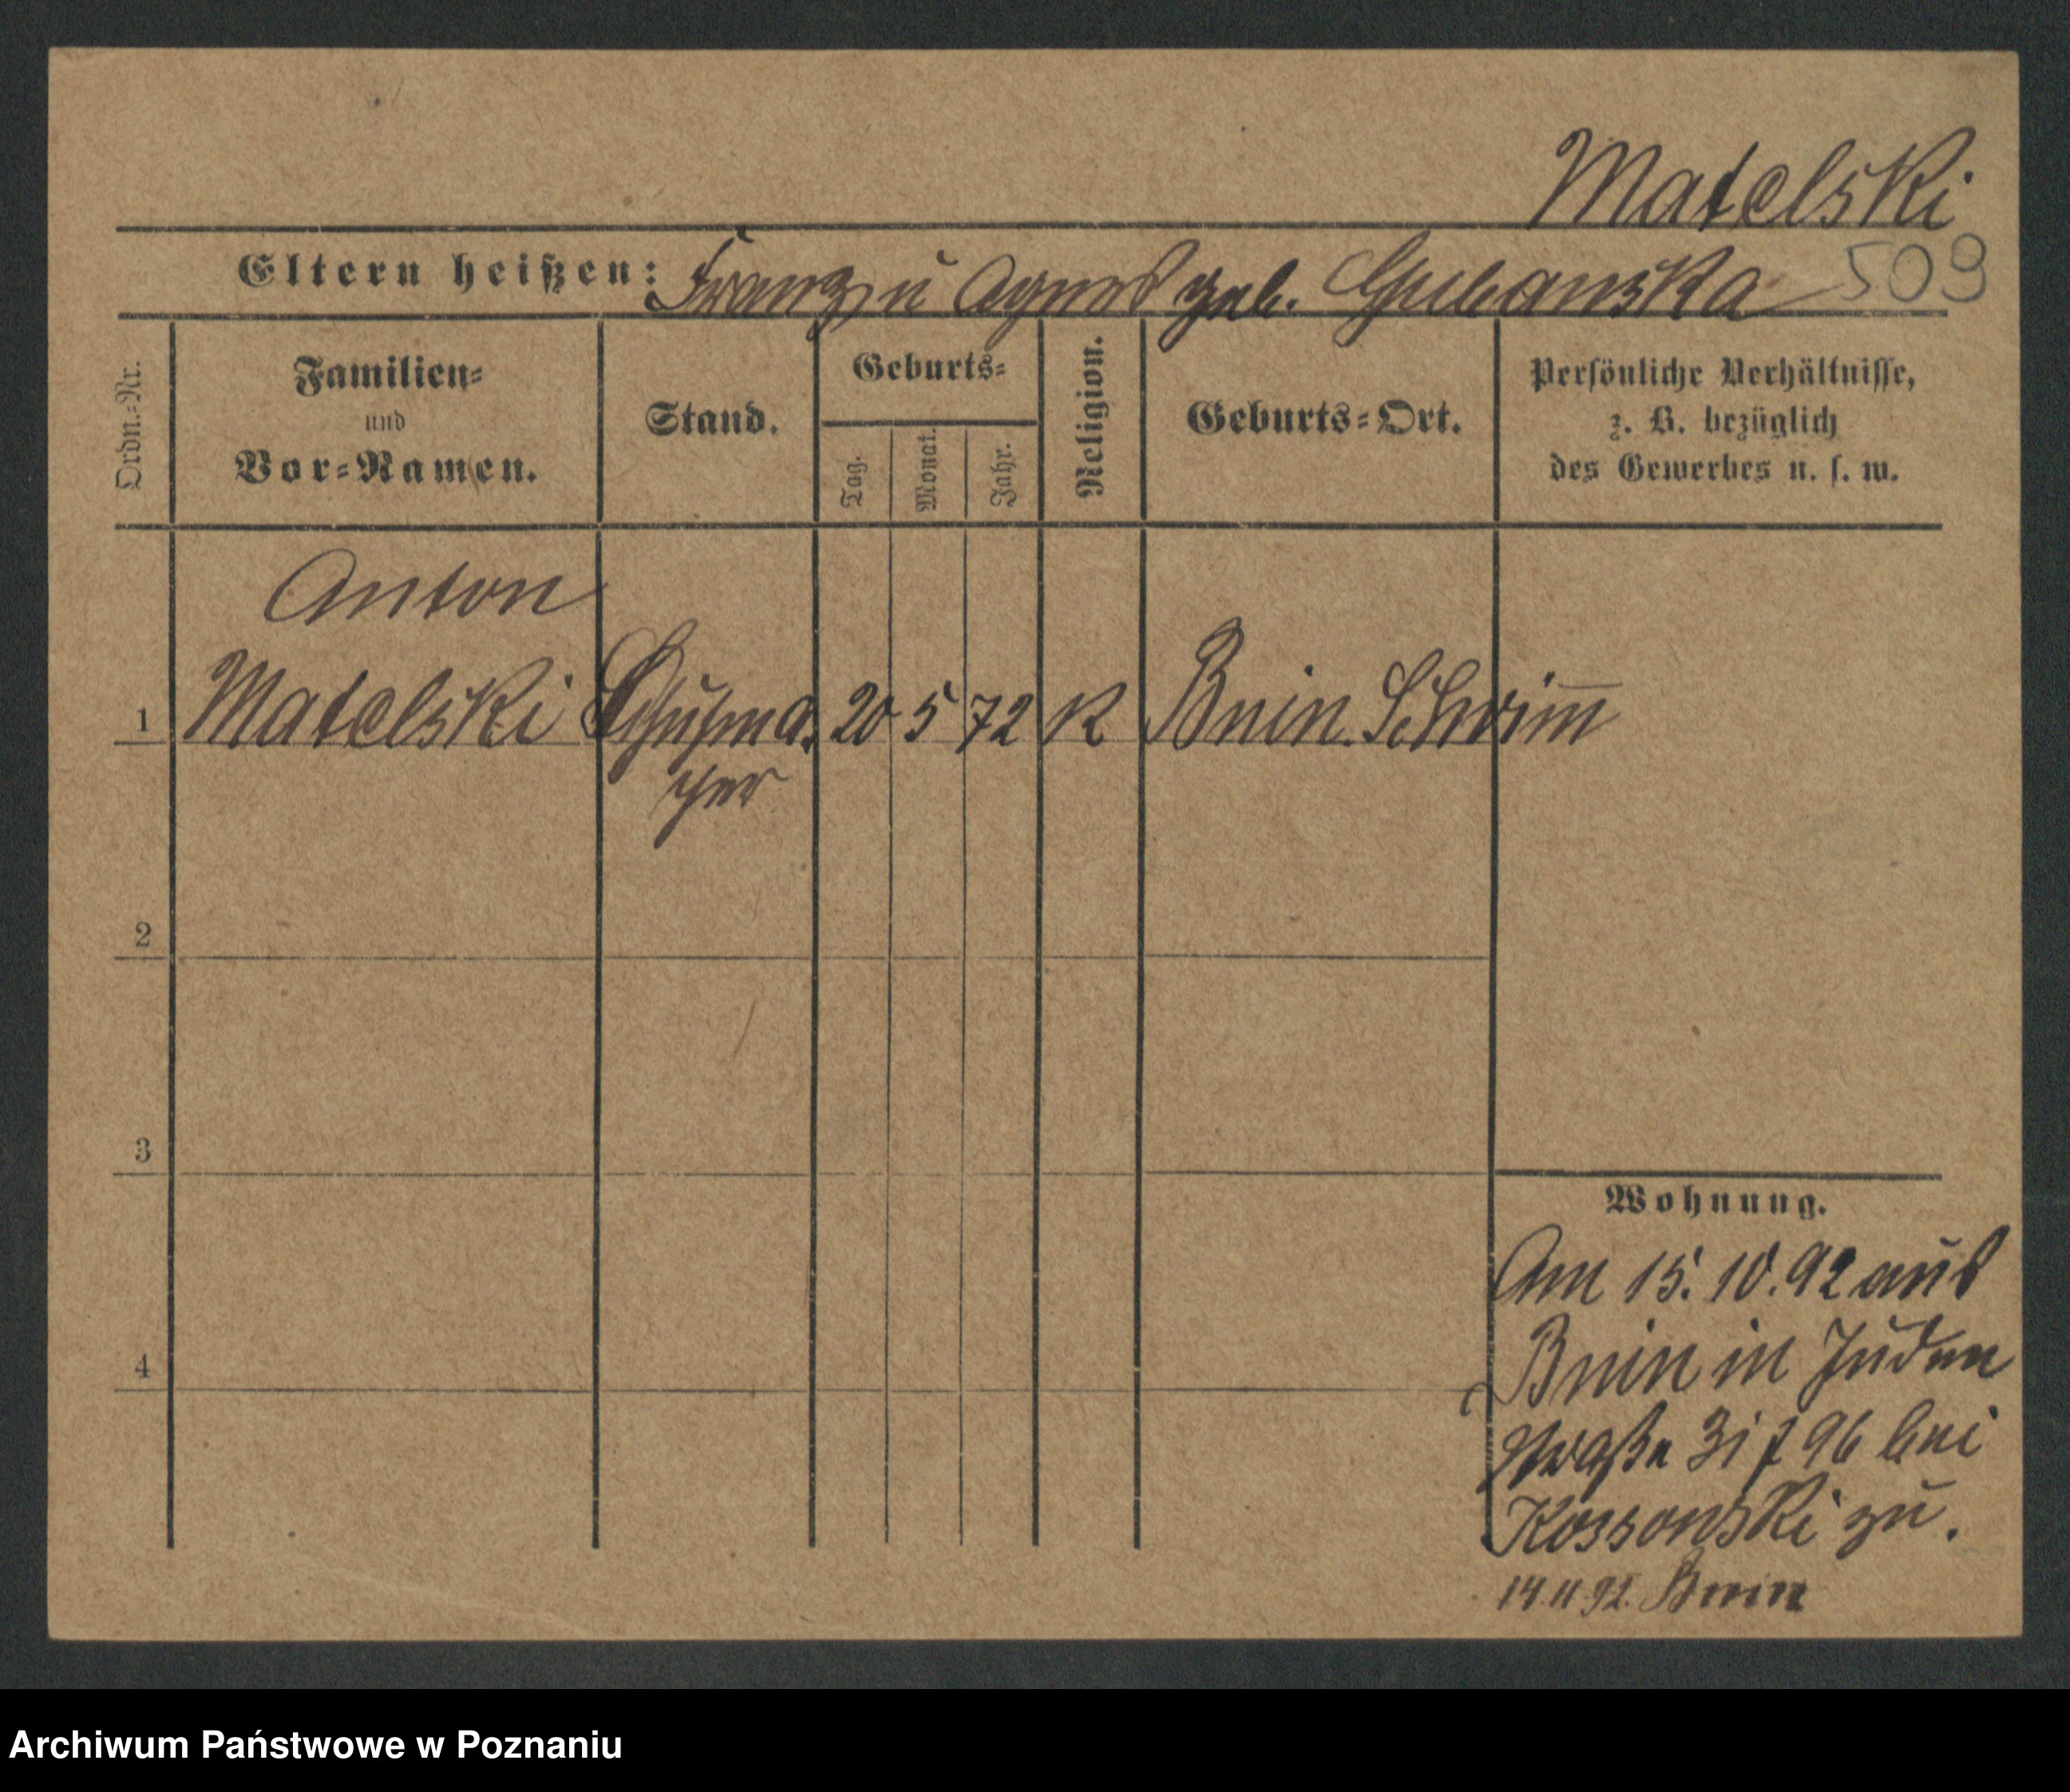 Matelski
Eltern heißen: Franz u Agnes geb. Gubanska 509
Ordn.-Nr.
Familien-
und
Vor-Namen.
Stand.
Geburts-
Tag.
Monat.
Jahr.
Religion.
Geburts-Ort.
Persönliche Verhältnisse,
z. B. bezüglich
des Gewerbes u. s. w.
Anton
1 Matelski Schuhma. 20 5 72 K Bnin. Schrimm
cher
2
3
4
Wohnung.
Am 15. 10. 92 aus
Bnin in Juden
straße bei
Kossowski zu.
14.11 92. Bnin
Archiwum Państwowe w Poznaniu